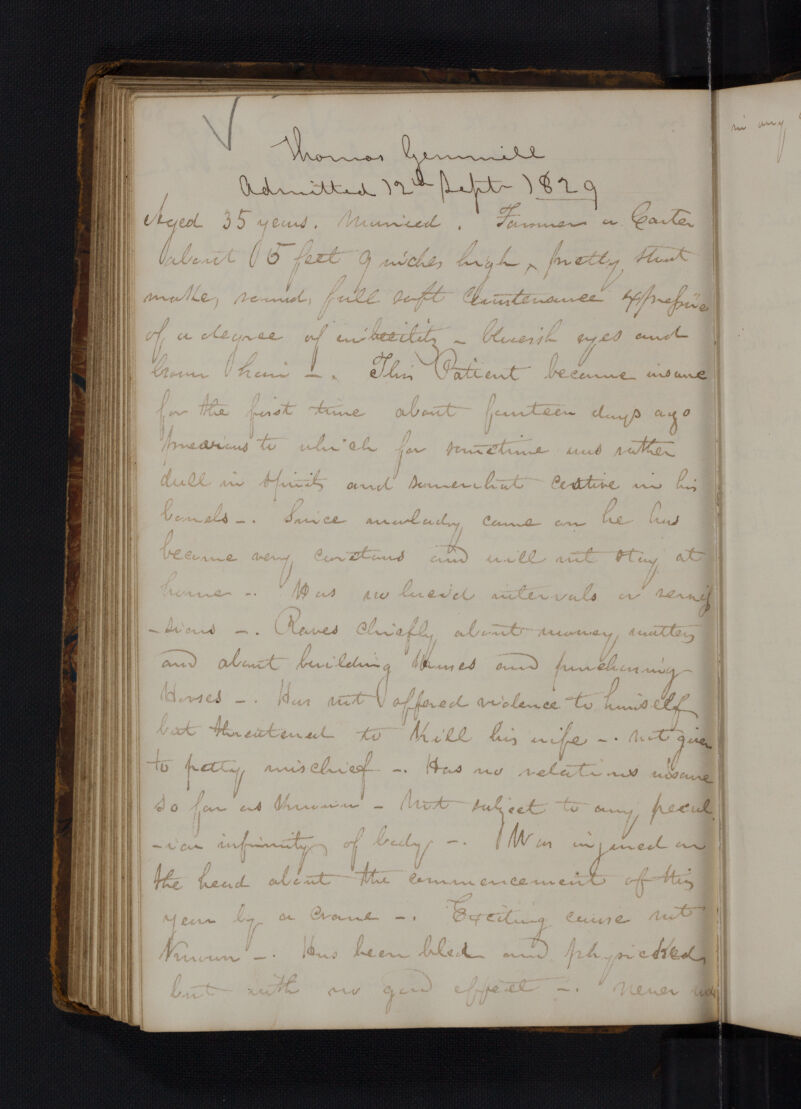 Thomas Gemmill
Admitted 12th Septr 1829
Aged 35 years. Married. Farmer a Carter
about 5 feet 9 inches high, pretty stout
make, round, full soft Countenance expressive
of a degree of imbecility - bluish eyes and
brown hair -. This Patient became insane
for the first time about fourteen days ago
previous to which for sometime was rather
dull in spirits and somewhat costive in his
bowels -. Since malady came on he has
become very and will not stay at
home -. Has no lucid intervals or remis
-sions -. Raves chiefly about money matters
and about building Houses and purchasing
Horses -. Has not offered violence to himself
but threatened to kill his wife -. not given
to petty mischief -. Has no relations insane
so far as known - Not subject to any pecul
-iar infirmity of body -. Was injured on
the head about the commencement of this
year by a Crane -. Exciting cause not
known -. Has been bled and physicked
but with no good effect -. Never
in any